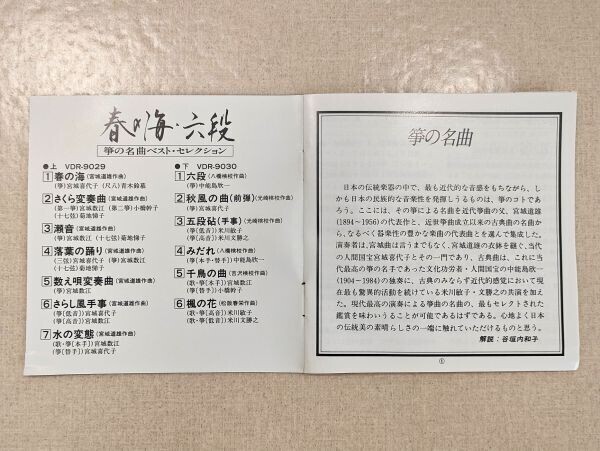 春の海・六段
箏の名曲ベスト・セレクション
●上 VDR-9029
1 春の海(宮城道雄作曲)
(箏)宮城喜代子 (尺八)青木鈴慕
2 さくら変奏曲(宮城道雄作曲)
(第一箏)宮城数江 (第二箏)小橋幹子
(十七弦)菊地悌子
3 瀬音(宮城道雄作曲)
(箏)宮城数江 (十七弦)菊地悌子
4 落葉の踊り(宮城道雄作曲)
(三弦)宮城喜代子 (箏)宮城数江
(十七弦)菊地悌子
5 数え唄変奏曲(宮城道雄作曲)
(箏)宮城数江
6 さらし風手事(宮城道雄作曲)
(箏〔低音〕)宮城喜代子
(箏〔高音〕)宮城数江
7 水の変態(宮城道雄作曲)
(歌・箏〔本手〕)宮城数江
(箏〔替手〕)宮城喜代子
●下 VDR-9030
1 六段(八橋検校作曲)
(箏)中能島欣一
2 秋風の曲(前弾)(光崎検校作曲)
(箏)宮城喜代子
3 五段砧(手事)(光崎検校作曲)
(箏〔低音〕)米川敏子
(箏〔高音〕)米川文勝之
4 みだれ(八橋検校作曲)
(箏〔本手・替手〕)中能島欣一
5 千鳥の曲(吉沢検校作曲)
(歌・箏〔本手〕)宮城数江
(箏〔替手〕)小橋幹子
6 楓の花(松阪春栄作曲)
(歌・箏〔高音〕)米川敏子
(歌・箏〔低音〕)米川文勝之
箏の名曲
日本の伝統楽器の中で、最も近代的な音感をもちながら、し
かも日本の民族的な音楽性を発揮しうるものは、箏のコトであ
ろう。ここには、その箏による名曲を近代箏曲の父、宮城道雄
(1894〜1956)の代表作と、近世箏曲成立以来の古典曲の名曲か
ら、なるべく器楽性の豊かな楽曲の代表曲とを選んで集成した。
演奏者は、宮城曲は言うまでもなく、宮城道雄の衣鉢を継ぐ、当代
の人間国宝宮城喜代子とその一門であり、古典曲は、これに当
代最高の箏の名手であった文化功労者・人間国宝の中能島欣一
(1904〜1984)の独奏に、古典のみならず近代的感覚において現
在最も驚異的活動を続けている米川敏子・文勝之の共演を加え
た。現代最高の演奏による箏曲の名曲の、最もセレクトされた
鑑賞を味わいうることが可能であるはずである。心地よく日本
の伝統美の素晴らしさの一端に触れていただけるものと思う。
解説：谷垣内和子
①